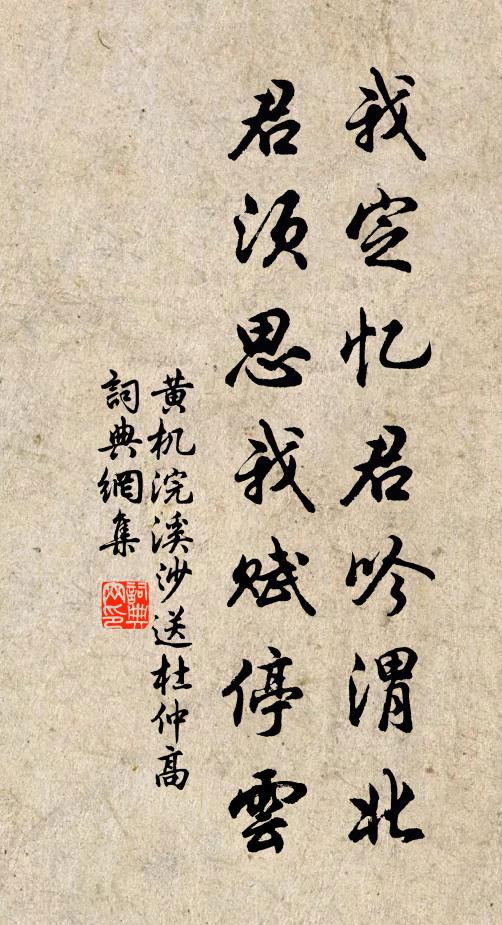 我定忆君吟渭北
君须思我赋停雲
黄机浣溪沙送杜仲高
詞典網集
詞典网印